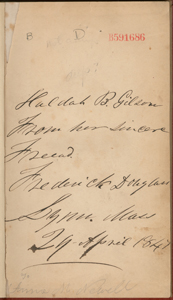 B D
8591686
Huldah B. Gibson
From her Sincere
Friend
Frederick Douglass
Lynn Mass
29 April 1847